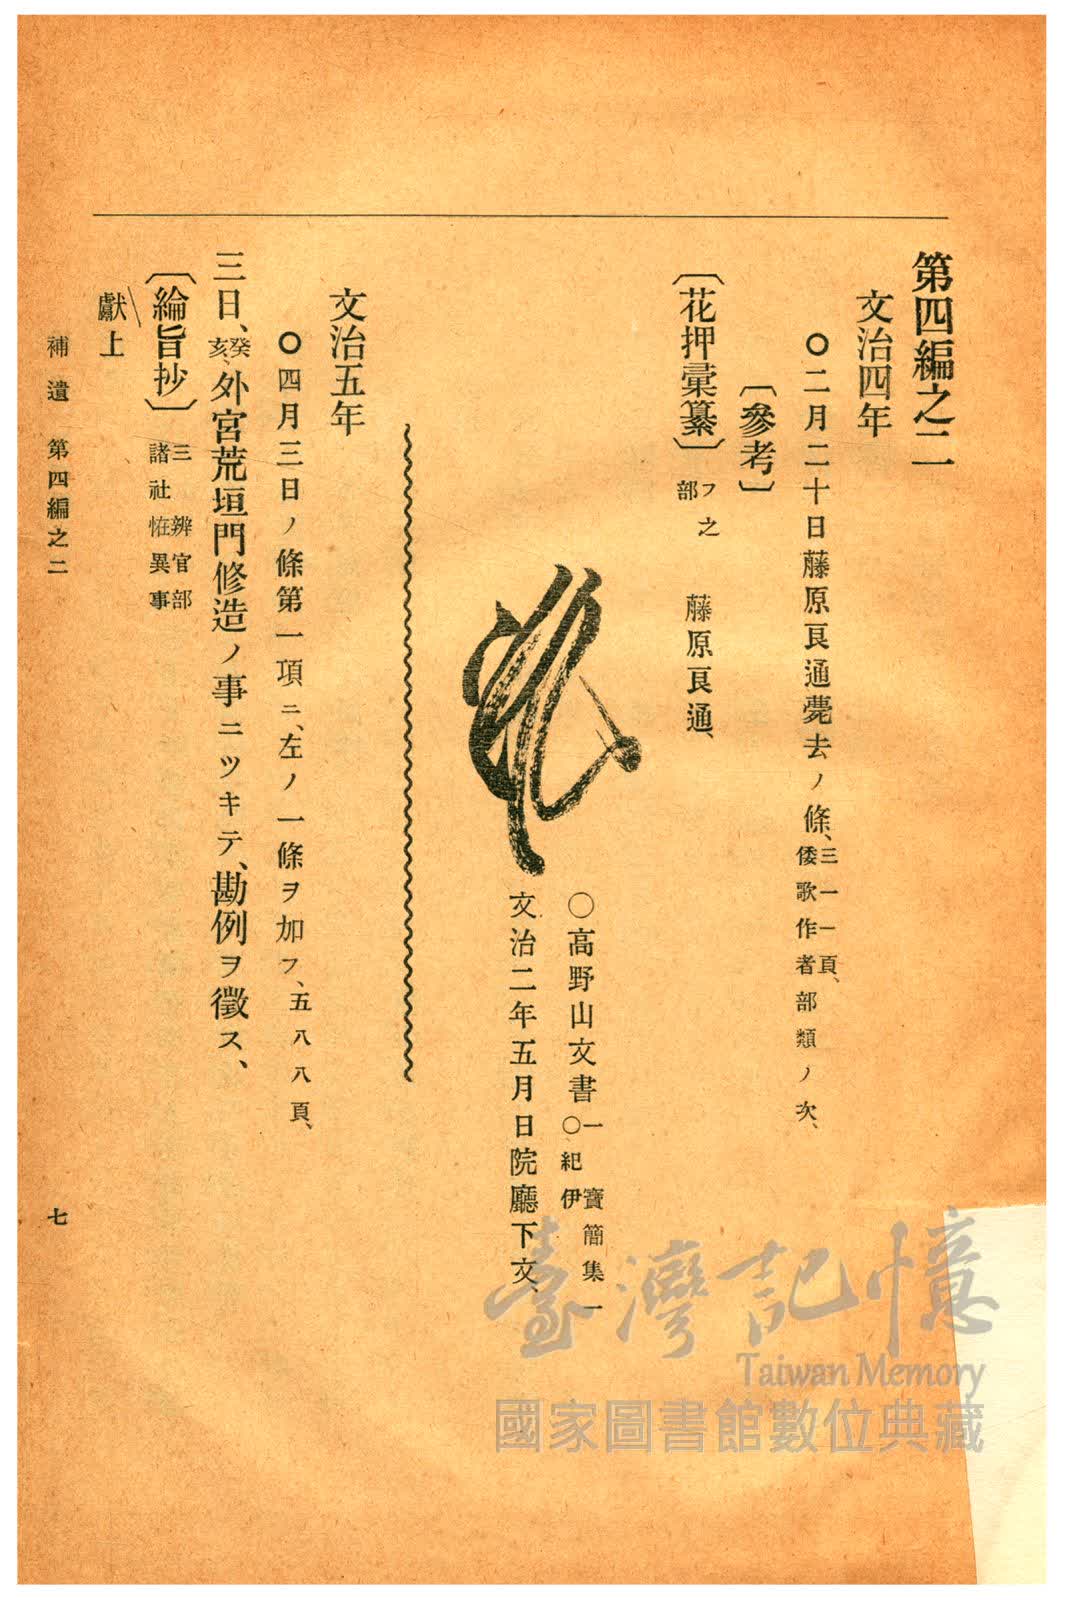 第四編之二
文治四年
〇二月二十日藤原良通薨去ノ條、三一一頁、倭歌作者部類ノ次、
〔參考〕
〔花押彙纂〕フ之部 藤原良通、
〇高野山文書一 寶簡集一〇紀伊
文治二年五月日院廳下文、
文治五年
〇四月三日ノ條第一項ニ、左ノ一條ヲ加フ、五八八頁、
三日、癸亥、外宮荒垣門修造ノ事ニツキテ、勘例ヲ徵ス、
〔綸旨抄〕三 辨官部 諸社恠異事
獻上
補遺 第四編之二
七
臺灣記憶
Taiwan Memory
國家圖書館數位典藏